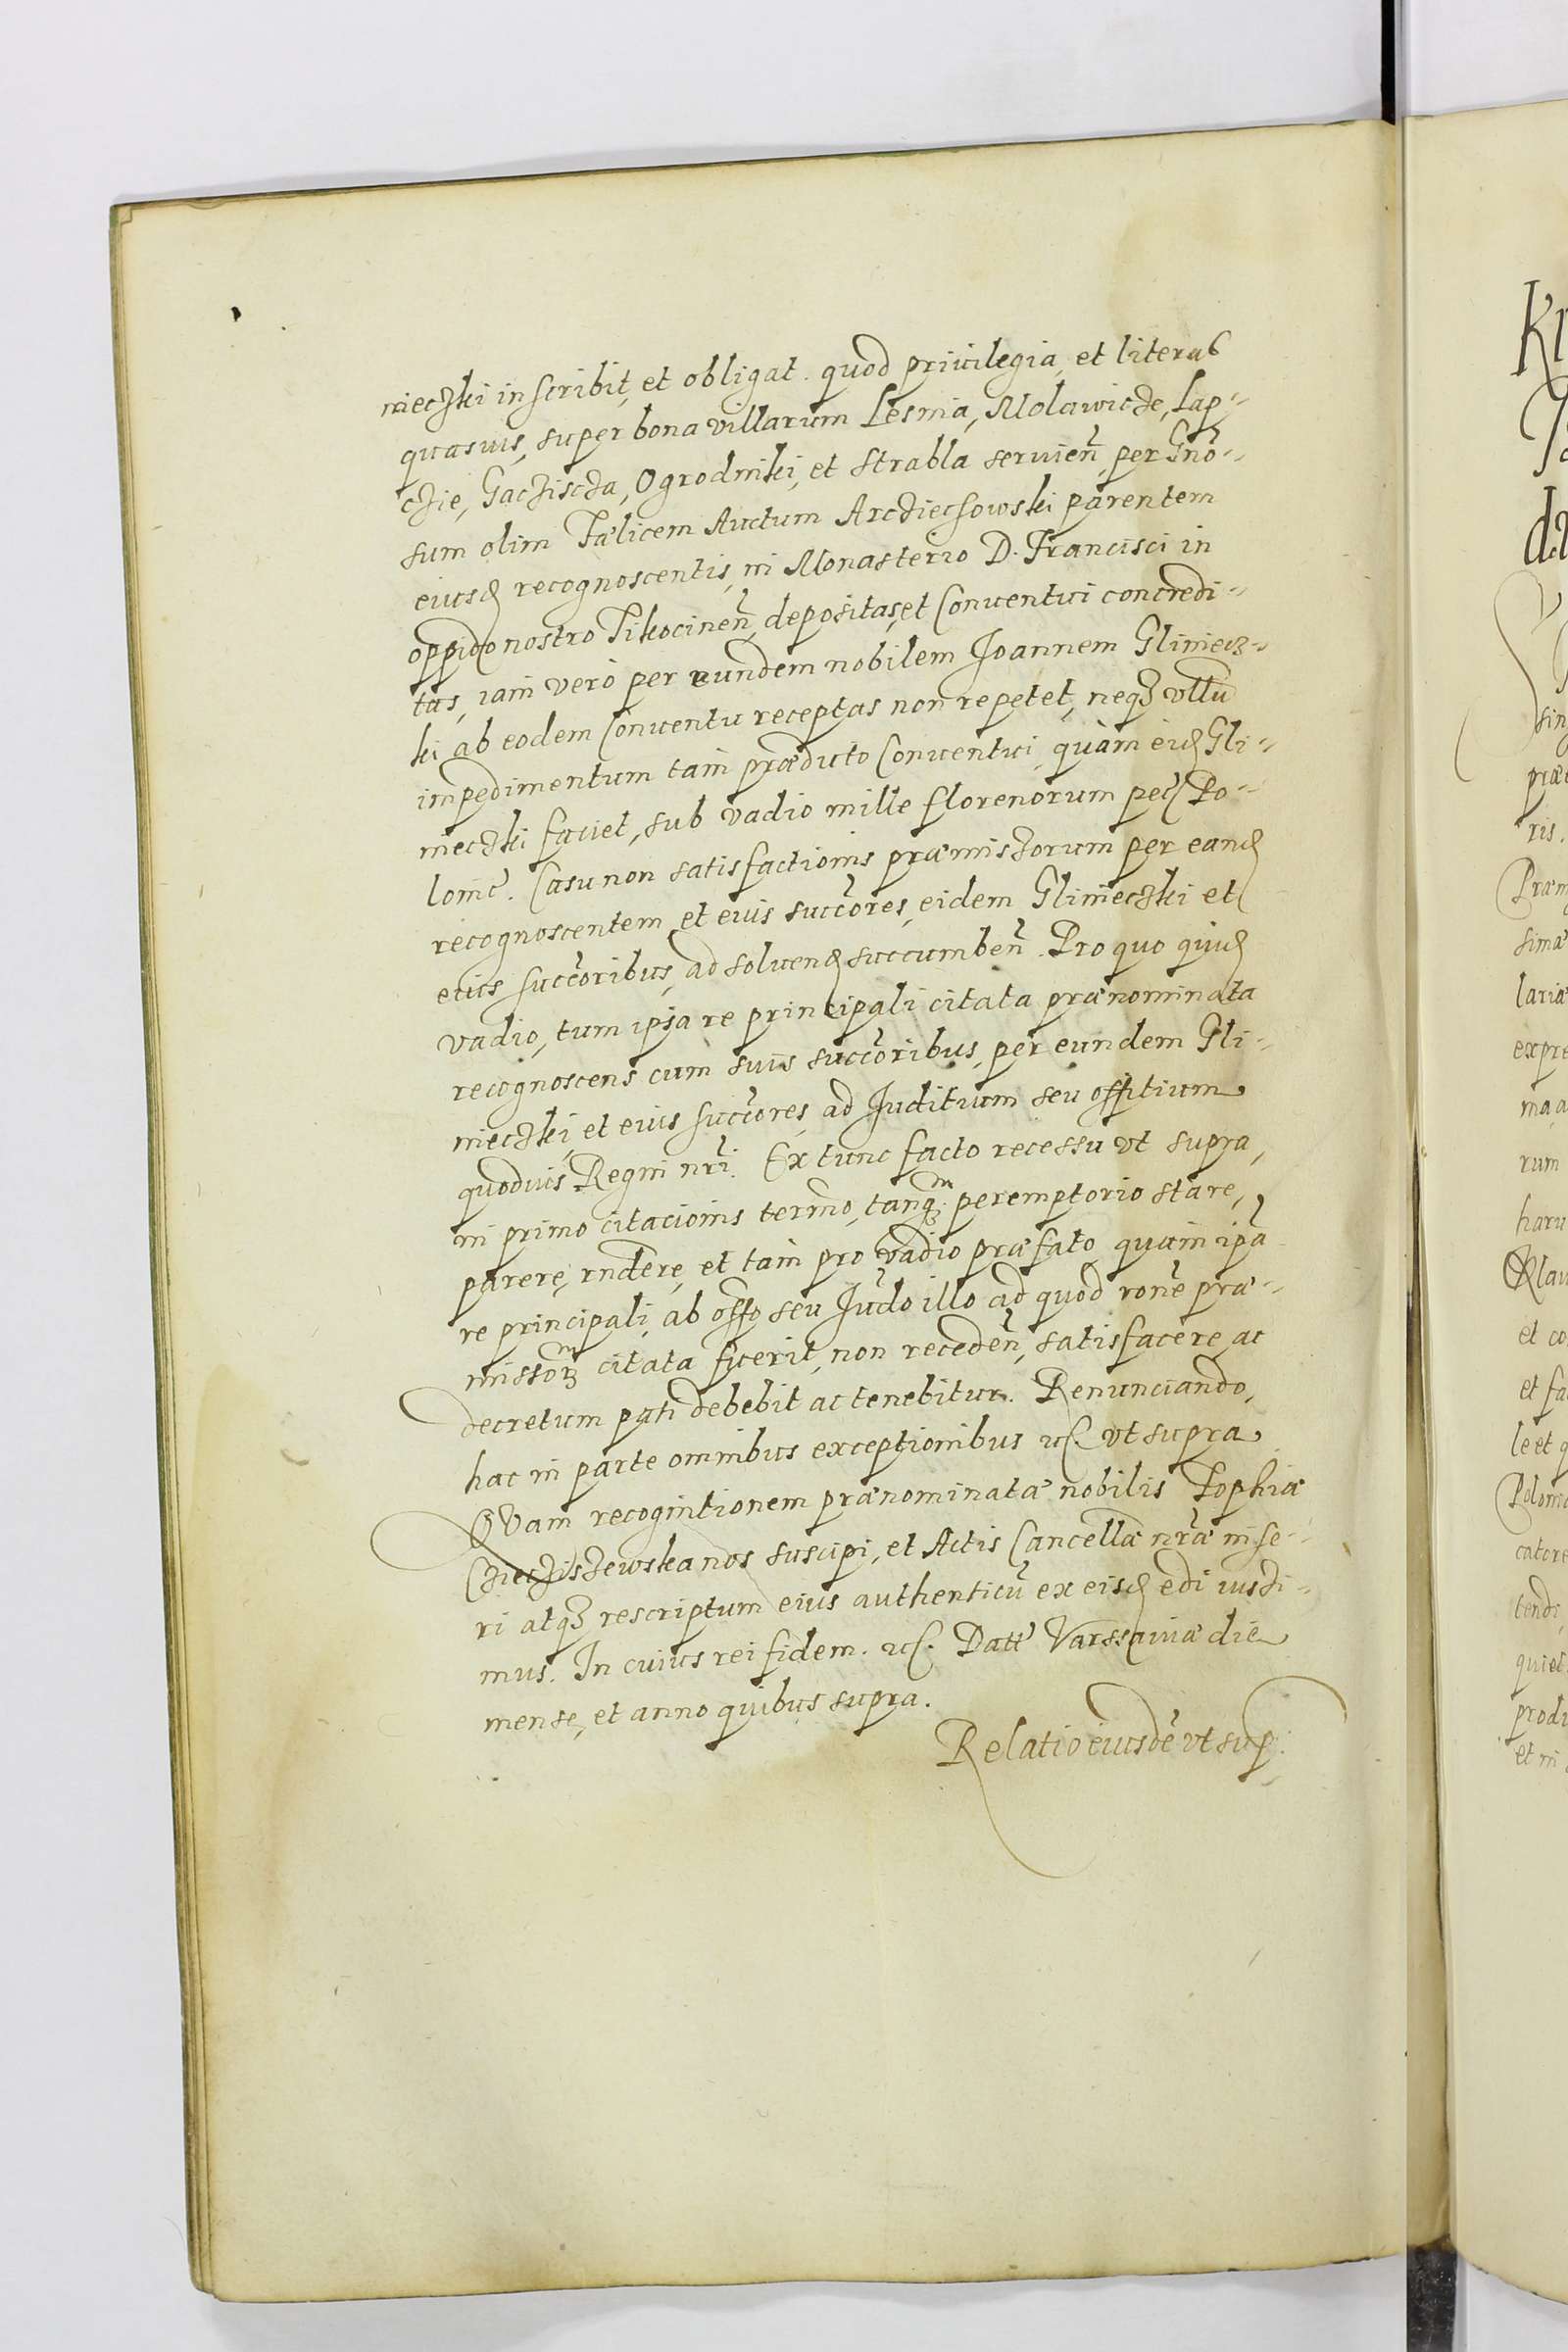 nieczki inscribit, et obligat. quod priuilegia, et literas
quasuis, super bona villarum Lesnia, Molawicze, Lap-
czie, Gacziscza, Ogrodniki, et Strabla seruien̄, per Gn̄o-
sum olim Fælicem Auctum Arcziechowski parentem
eiusd recognoscentis, in Monasterio D. Francisci in
oppido nostro Tikocinen̄, depositas, et Conuentui concredi-
tas, iam verò per eundem nobilem Joannem Gliniecz-
ki ab eodem Conuentu receptas non repetet, neqꝫ vllū
impedimentum tam præducto Conuentui, quàm eid Gli-
nieczki faciet, sub vadio mille florenorum pec Po-
lonic̄. Casu non satisfactionis præmissorum per eand
recognoscentem et eius succ̄ores, eidem Glinieczki et
eius succ̄oribus, ad soluend succumben̄. Pro quo quid
vadio, tum ipsa re principali citata prænominata
recognoscens cum suis succ̄oribus, per eundem Gli-
nieczki, et eius succ̄ores, ad Juditium seu offitium
quoduis Regni nr̄i. Ex tunc facto recessu vt supra,
in primo citacionis termo, tanqꝫ peremptorio stare,
parere, rn̄dere, et tam pro vadio præfato quàm ip̄a
re principali, ab offo seu Jud̄o illo ad quod ron̄e præ-
missorꝫ citata fuerit, non receden̄, satisfacere, ac
decretum pati debebit ac tenebitur. Renunciando,
hac in parte omnibus exceptionibus etc. vt supra
QVam recognitionem prænominatæ nobilis Zophiæ
Czieczisзewska nos suscipi, et Actis Cancellæ nr̄æ inse-
ri atqꝫ rescriptum eius authenticū ex eisd edi iussi-
mus. In cuius rei fidem. etc. Datt̄ Varssauiæ die
mense, et anno quibus supra.
Relatio eiusdē vt sup.